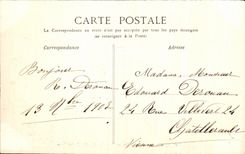 CARTE POSTALE
La Correspondance au recto n'est pas acceptée par tous les pays étrangers
se renseigner à la Poste
Correspondance
Adresse
Bonjour
R. Drouau
13 9bre 1908
Madame, Monsieur
Edouard Drouau
24 Rue 24
Châtellerault
Vienne